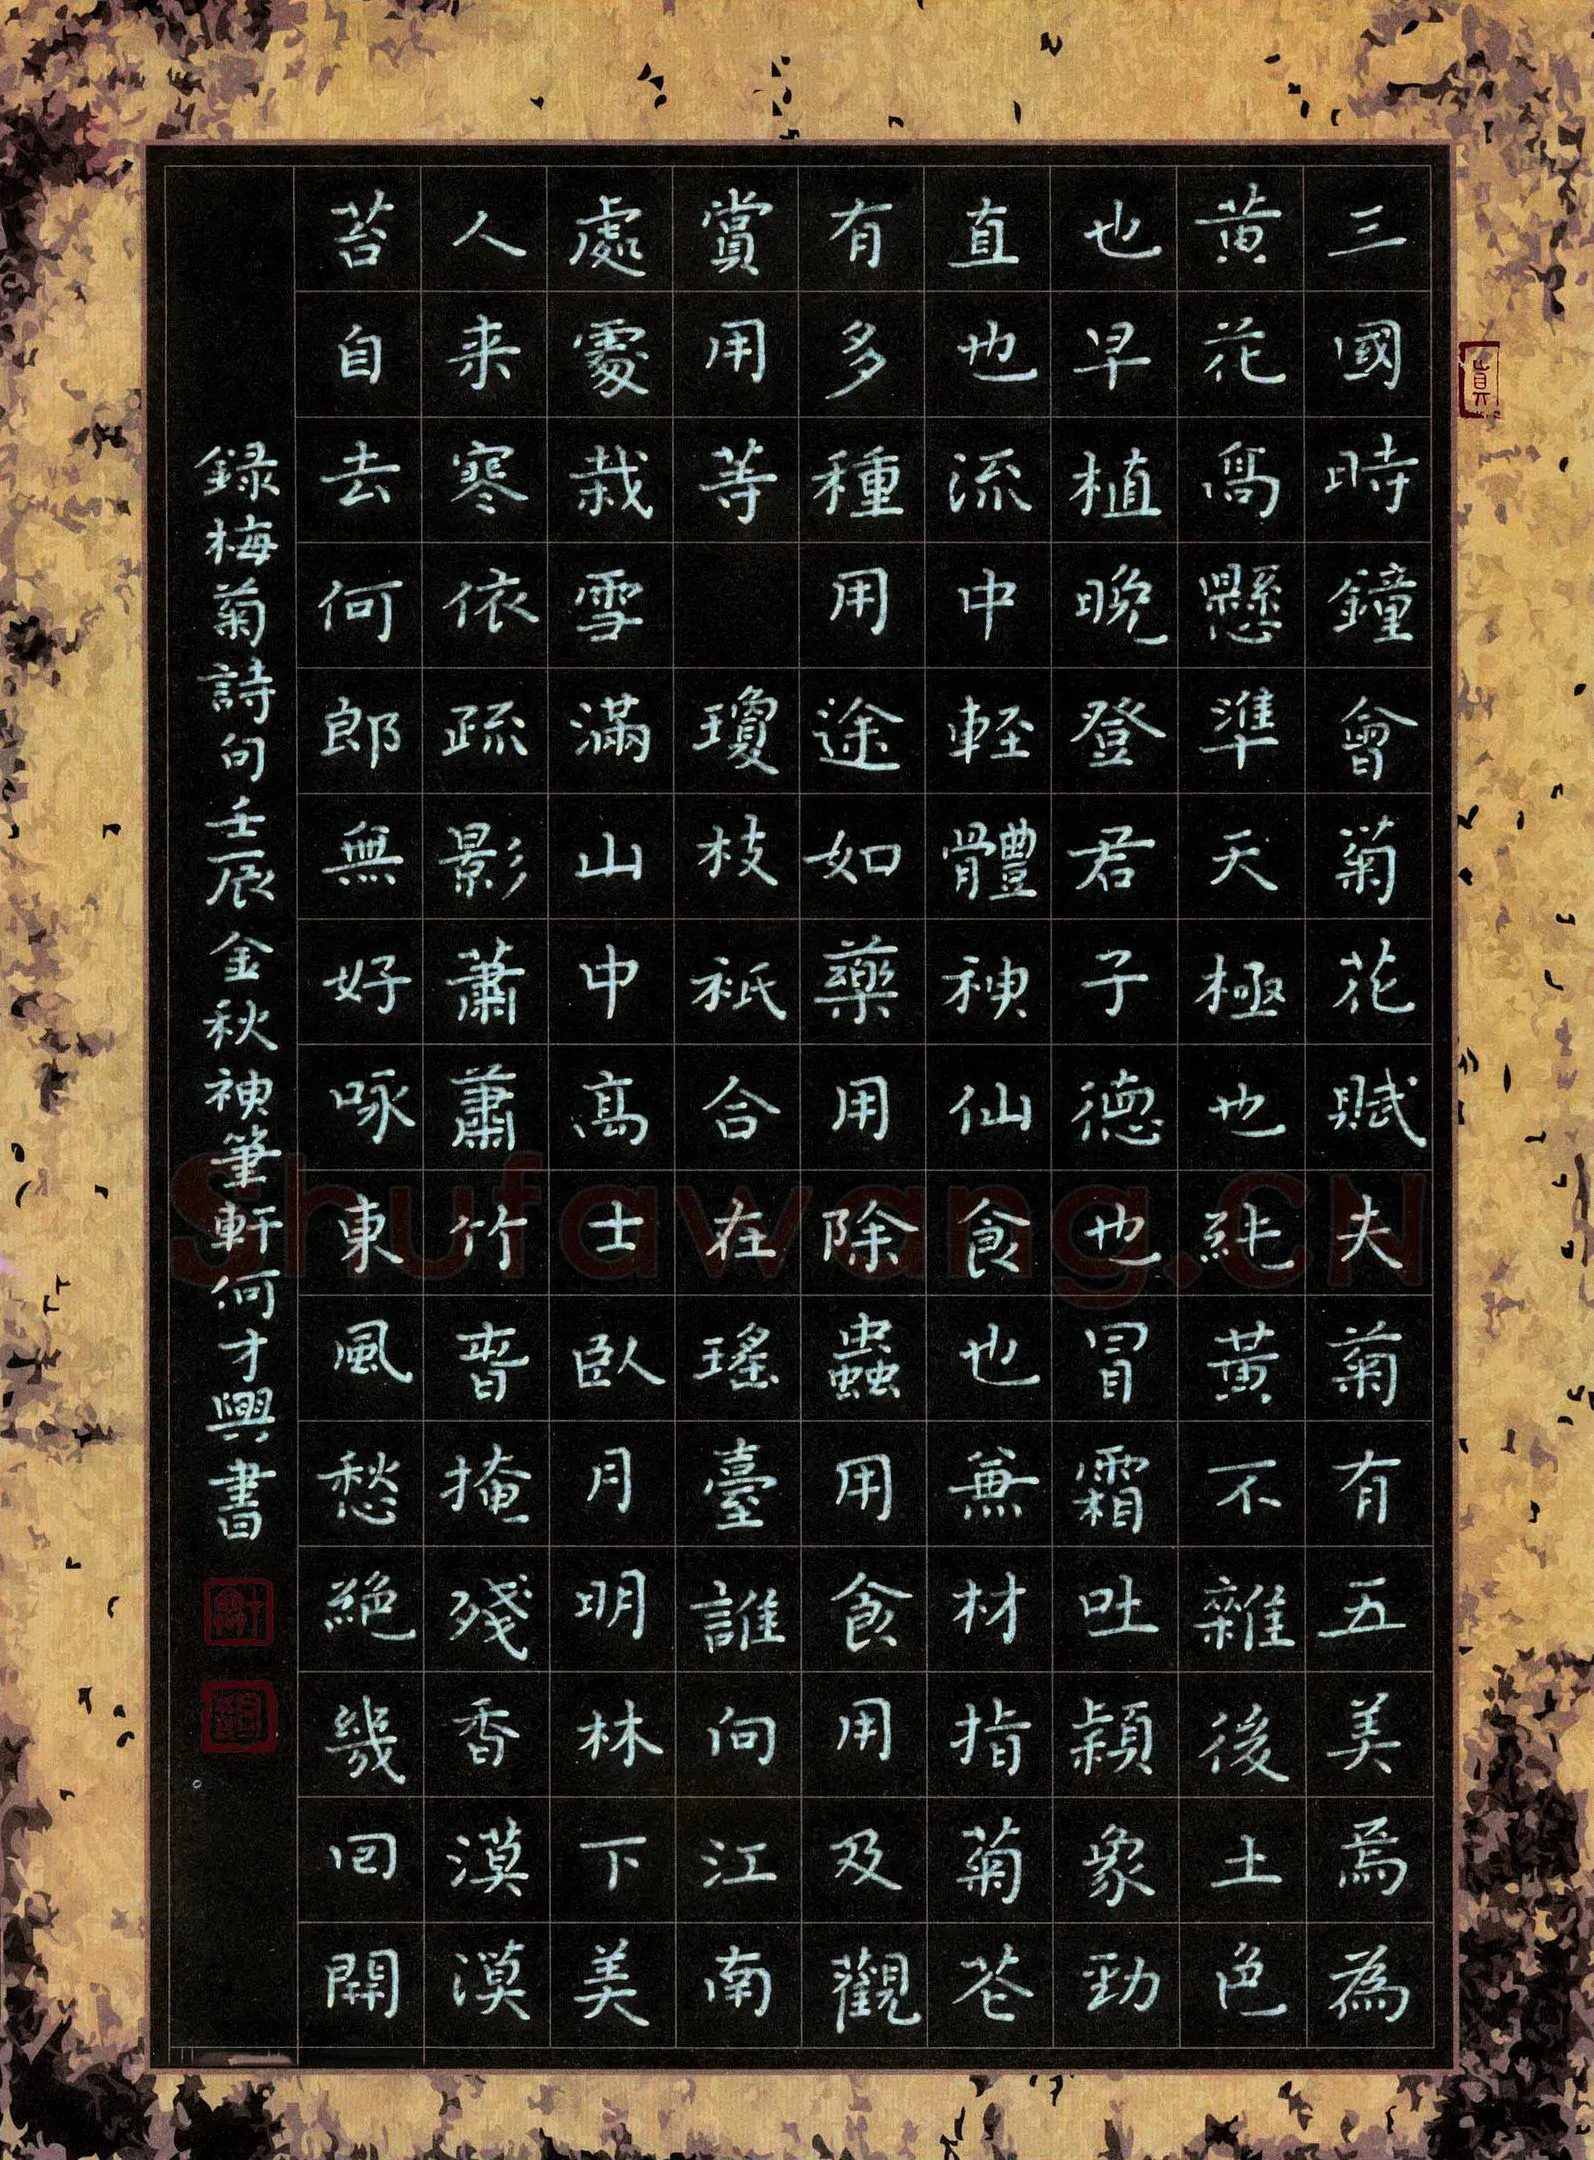 三國時鐘會菊花賦夫菊有五美焉為
黃花高懸準天極也純黃不雜後土色
也早植晚登君子德也冒霜吐穎象勁
直也流中輕體神仙食也無材指菊花
有多種用途如藥用除蟲用食用及觀
賞用等 瓊枝祇合在瑤臺誰向江南
處處栽雪滿山中高士臥月明林下美
人来寒依疏影蕭蕭竹春掩殘香漠漠
苔自去何郎無好咏東風愁絕幾回開
録梅菊詩句壬辰金秋神筆軒何才興書
Shufawang.CN